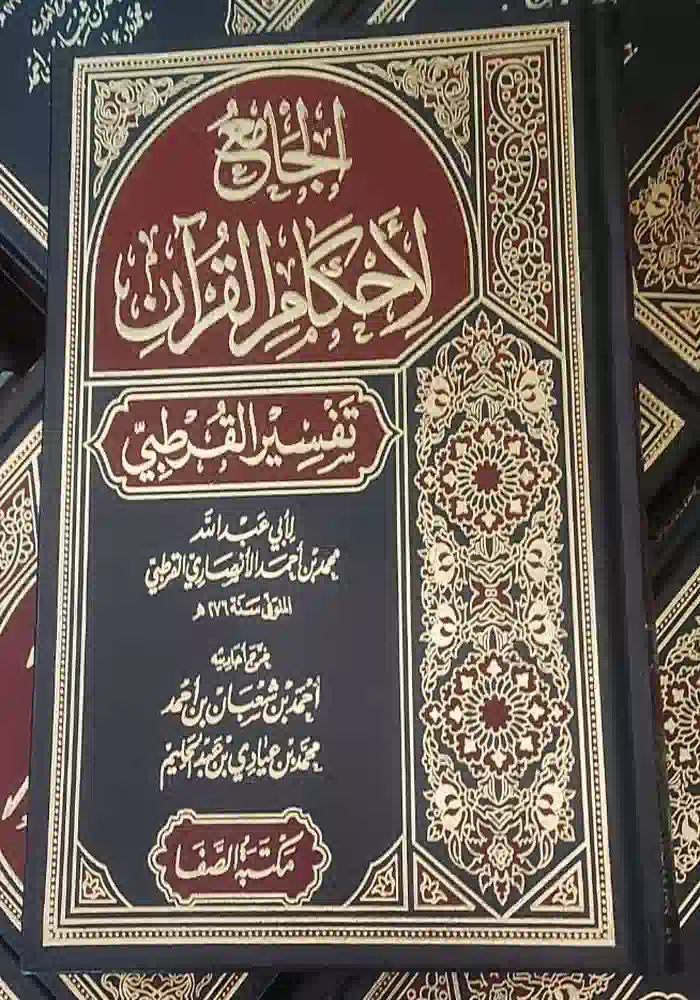 الجامع
لأحكام القرآن
تفسير القرطبي
لأبي عبد الله
محمد بن أحمد الأنصاري القرطبي
المتوفى سنة ٦٧١ هـ
خرج أحاديثه
أحمد بن شعبان بن أحمد
محمد بن عيادي بن عبد الحليم
مكتبة الصفا